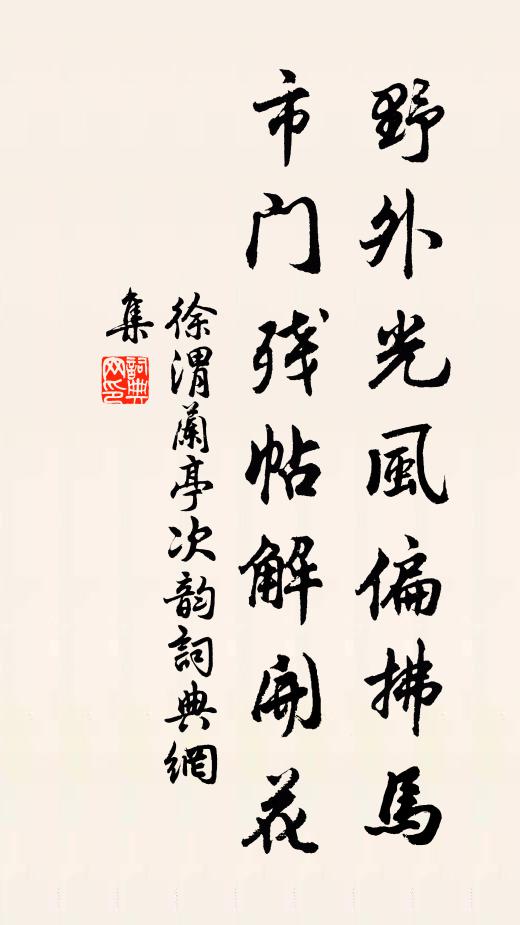 野外光風偏拂馬
市门残帖解開花
徐渭蘭亭次韵詞典網
集
詞典网印